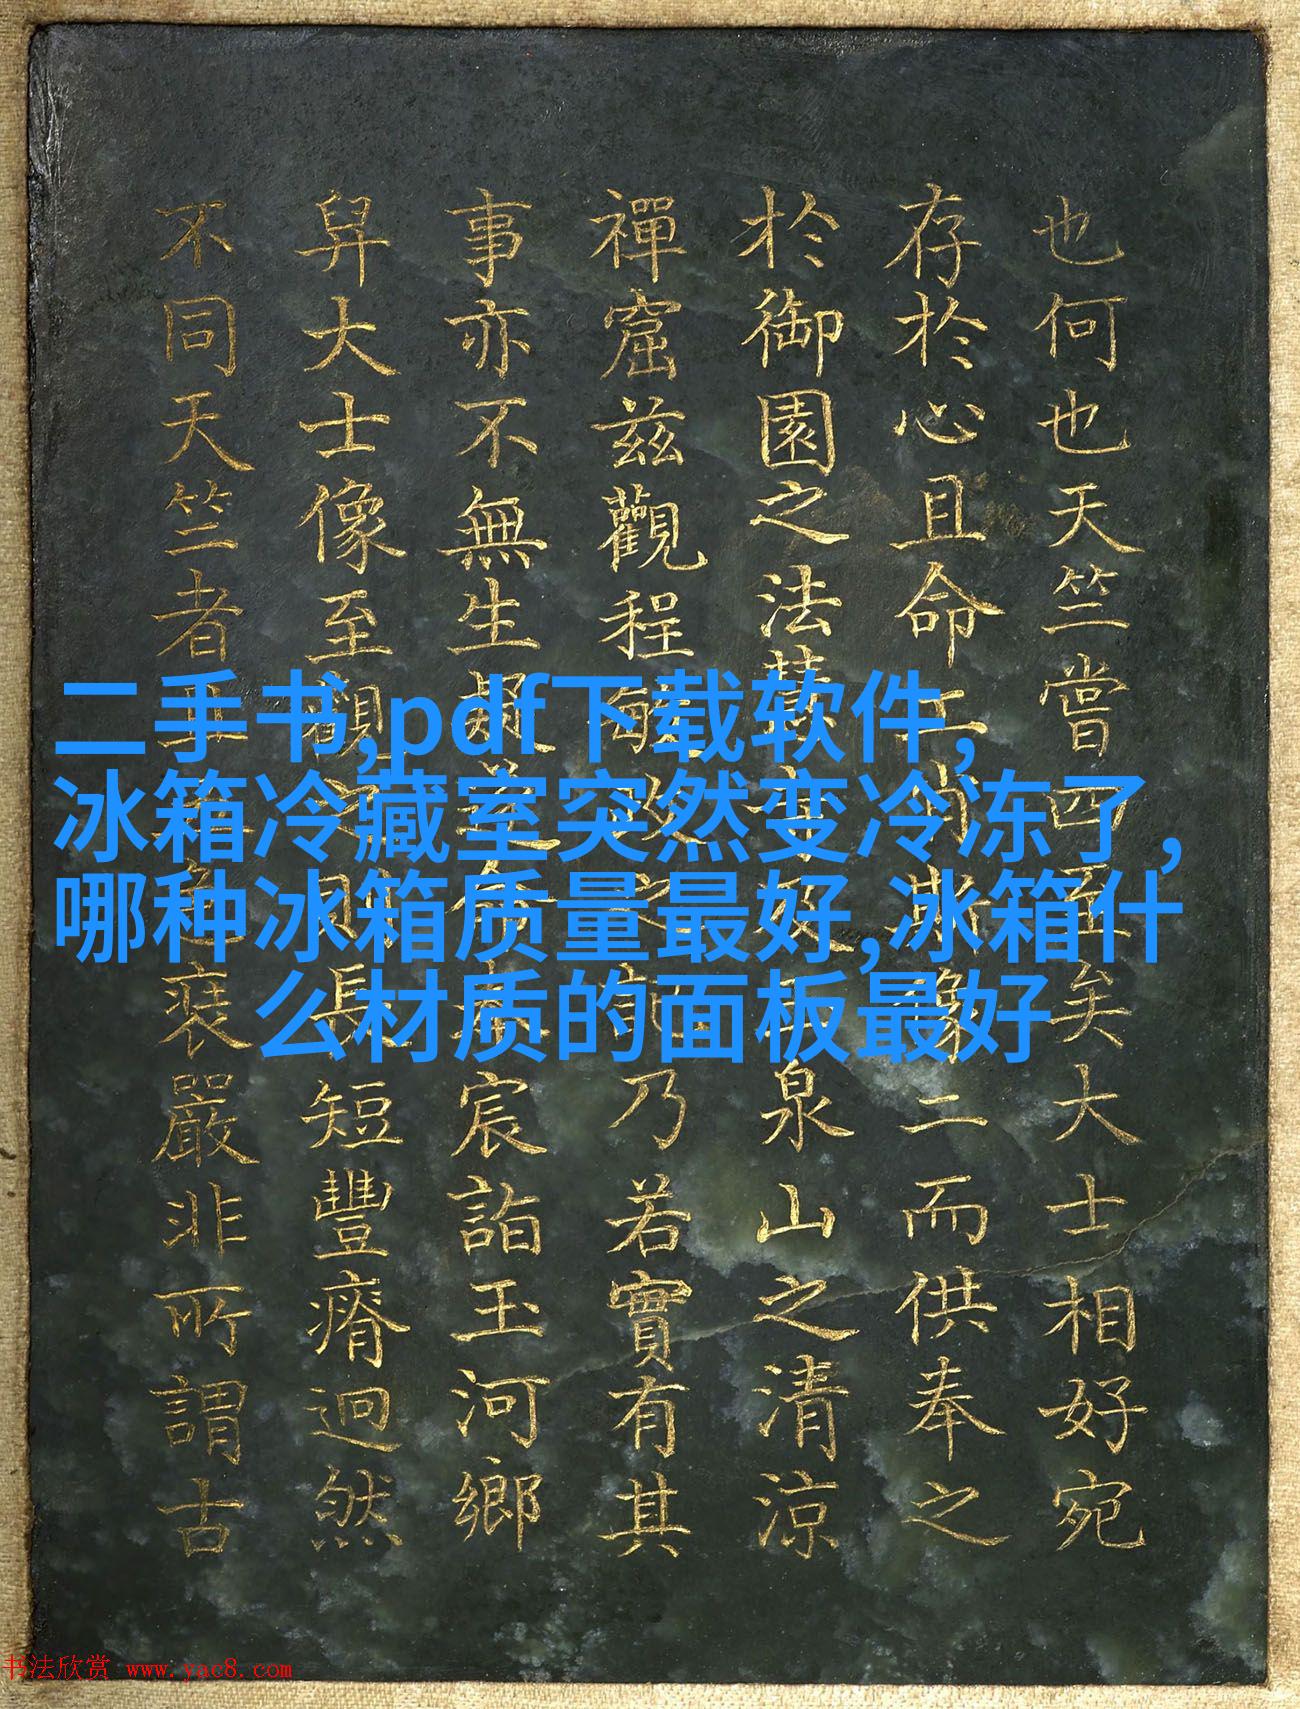 也何也天竺嘗四至矣大士相好宛
存於心且命工肖斯像二而供奉之
於御園之法慧寺及玉泉山之清涼
禪窟茲觀程敏政之記乃若實有其
事亦不無生疑爰命宸詣玉河鄉
舁大士像至則長短豐瘠迥然
不同天竺者嚴非所謂古
二手书,pdf下载软件,
冰箱冷藏室突然变冷冻了,
哪种冰箱质量最好,冰箱什
么材质的面板最好
书法欣赏 www.yac8.com